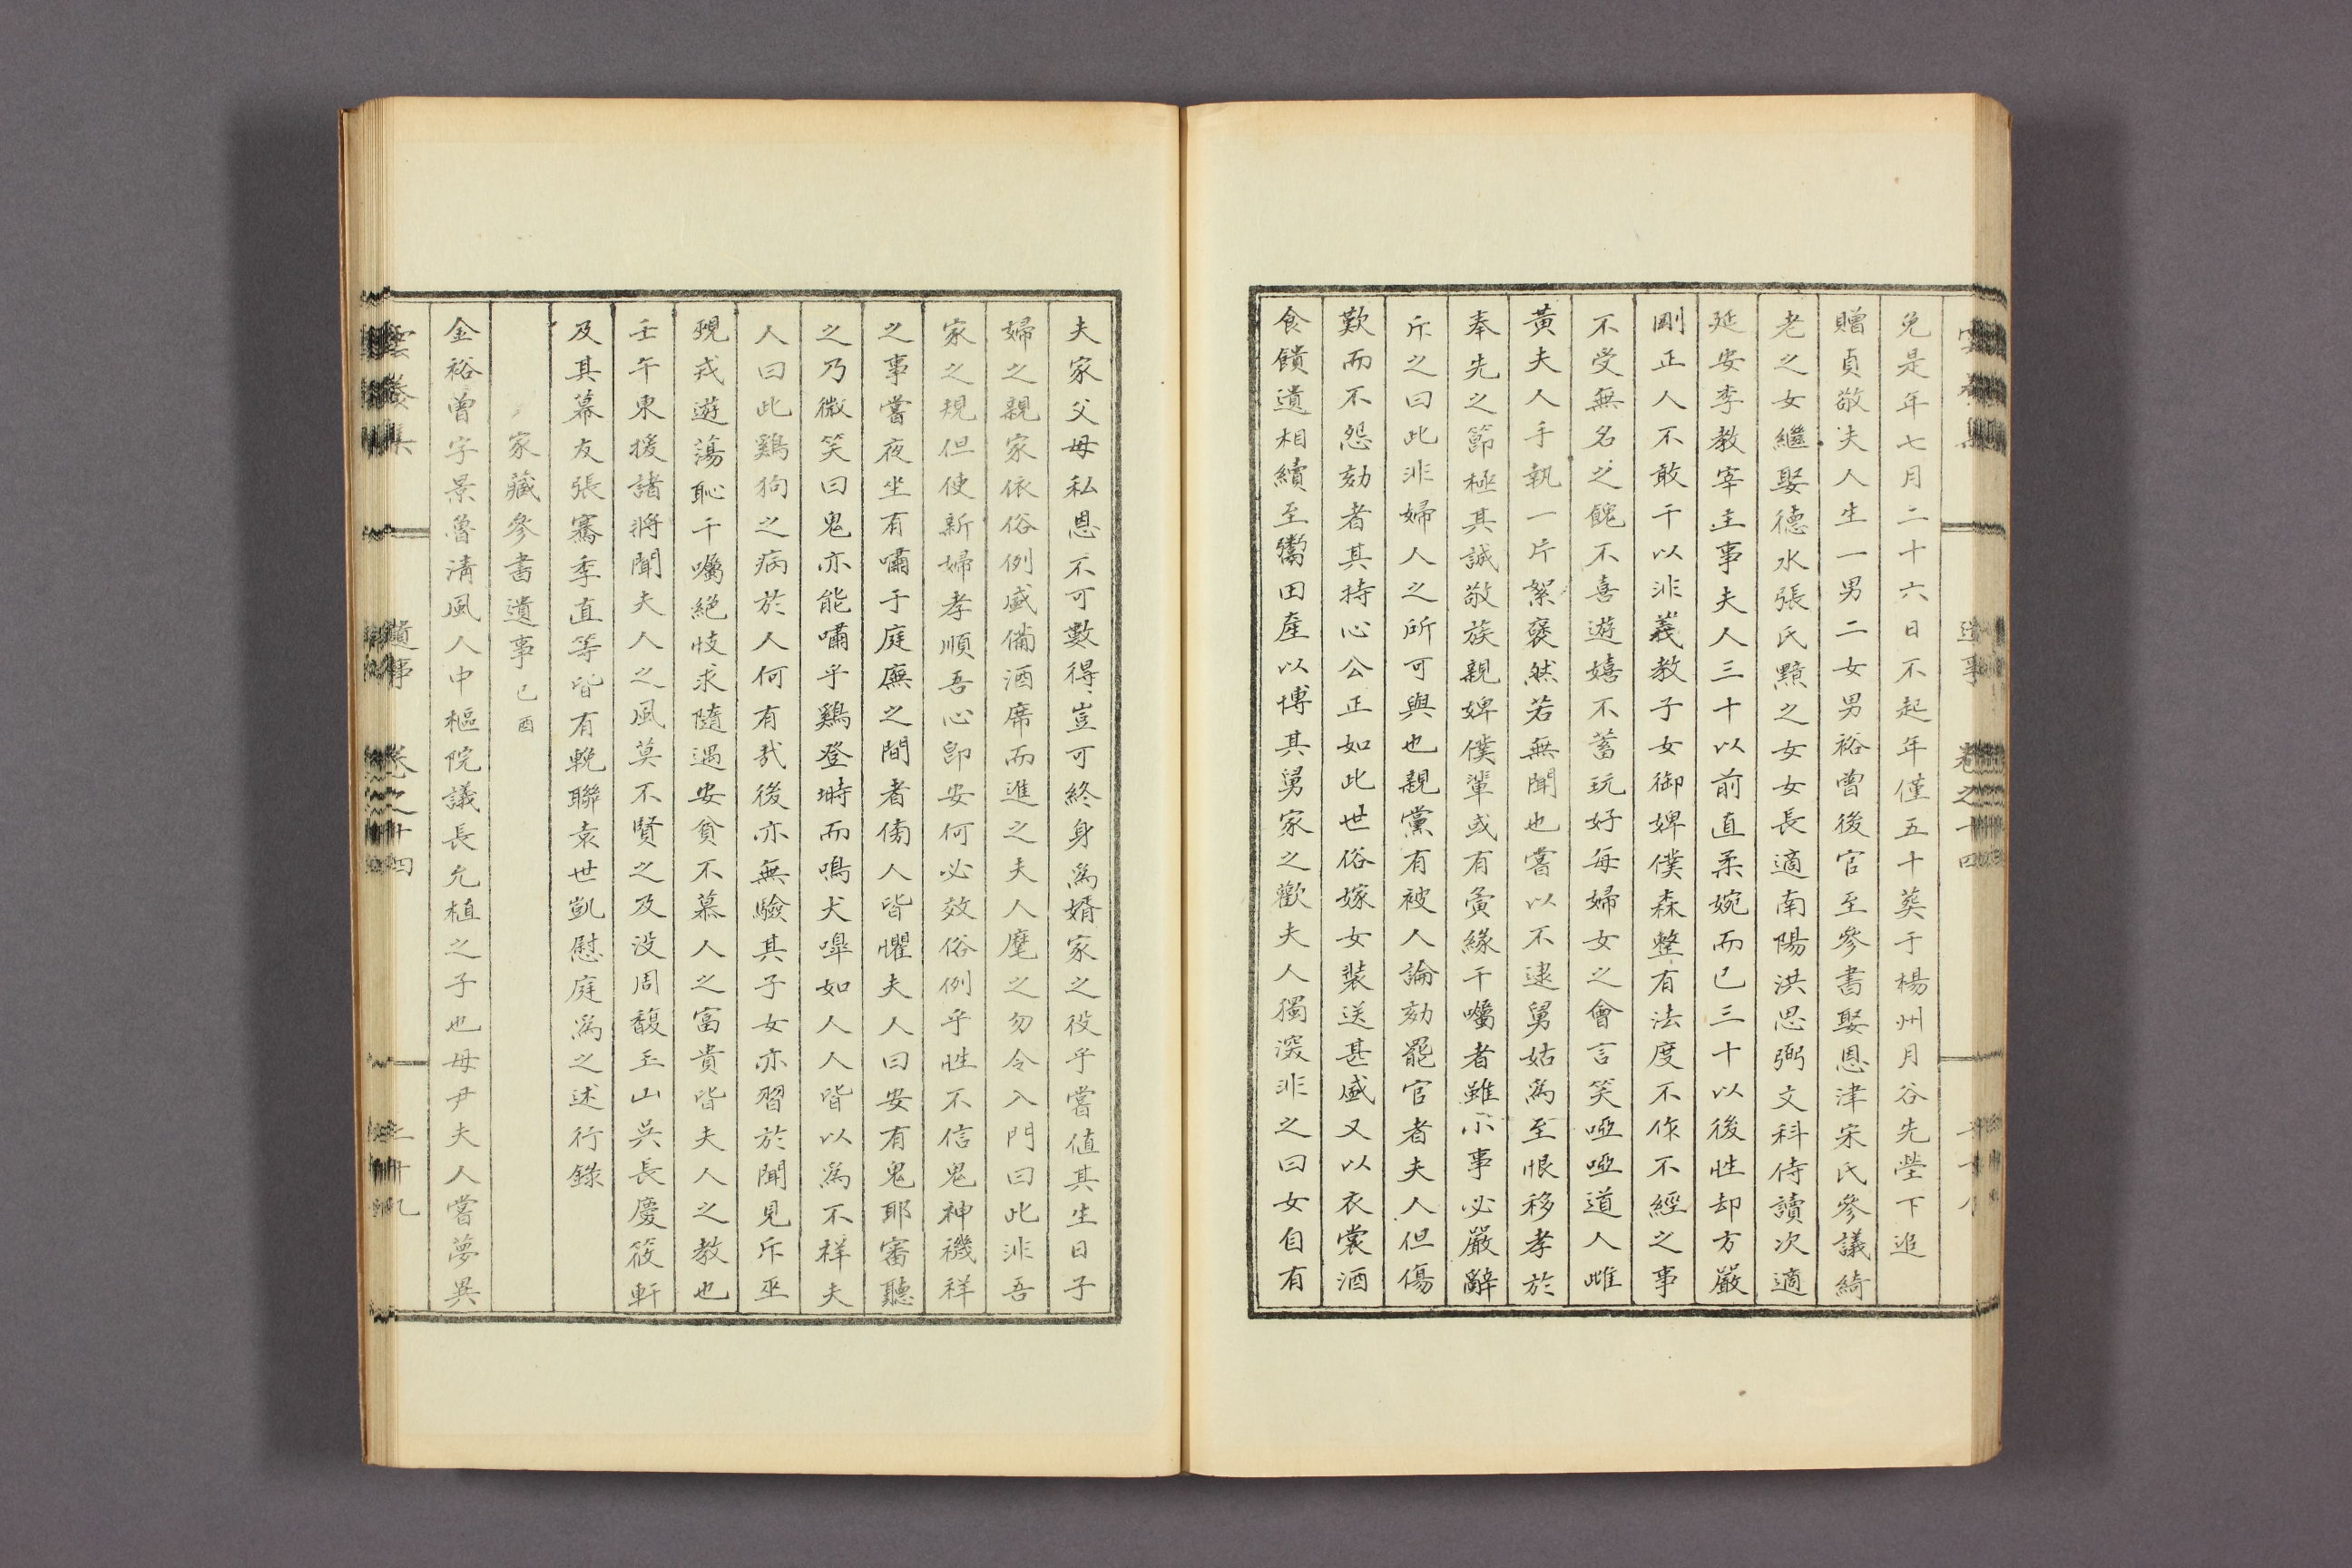 免是年七月二十六日不起年僅五十葬于楊州月谷先塋下追
贈貞敬夫人生一男二女男裕曾後官至參書娶恩津宋氏參議綺
老之女繼娶德水張氏黙之女女長適南陽洪思弼文科侍讀次適
延安李教宰主事夫人三十以前直柔婉而已三十以後性却方嚴
剛正人不敢干以非義教子女御婢僕森整有法度不作不經之事
不受無名之餽不喜遊嬉不蓄玩好每婦女之會言笑啞啞道人雌
黃夫人手執一片絮褎然若無聞也嘗以不逮舅姑爲至恨移孝於
奉先之節極其誠敬族親婢僕輩或有夤緣干囑者雖小事必嚴辭
斥之曰此非婦人之所可與也親黨有被人論劾罷官者夫人但傷
歎而不怨劾者其持心公正如此世俗嫁女裝送甚盛又以衣裳酒
食饋遺相續至鬻田產以博其舅家之歡夫人獨深非之曰女自有
夫家父母私恩不可數得豈可終身爲婿家之役乎嘗値其生日子
婦之親家依俗例盛備酒席而進之夫人麾之勿令入門曰此非吾
家之規但使新婦孝順吾心卽安何必效俗例乎性不信鬼神禨祥
之事嘗夜坐有嘯于庭廡之間者傍人皆懼夫人曰安有鬼耶審聽
之乃微笑曰鬼亦能嘯乎鷄登塒而鳴犬嘷如人人皆以爲不祥夫
人曰此鷄狗之病於人何有哉後亦無驗其子女亦習於聞見斥巫
覡戎遊蕩恥干囑絕忮求隨遇安貧不慕人之富貴皆夫人之教也
壬午東援諸將聞夫人之風莫不賢之及没周馥玉山吳長慶筱軒
及其幕友張騫季直等皆有輓聯袁世凱慰庭爲之述行錄
家藏參書遺事 己酉
金裕曾字景魯清風人中樞院議長允植之子也母尹夫人嘗夢異
雲養集 遺事 卷之十四 二十九